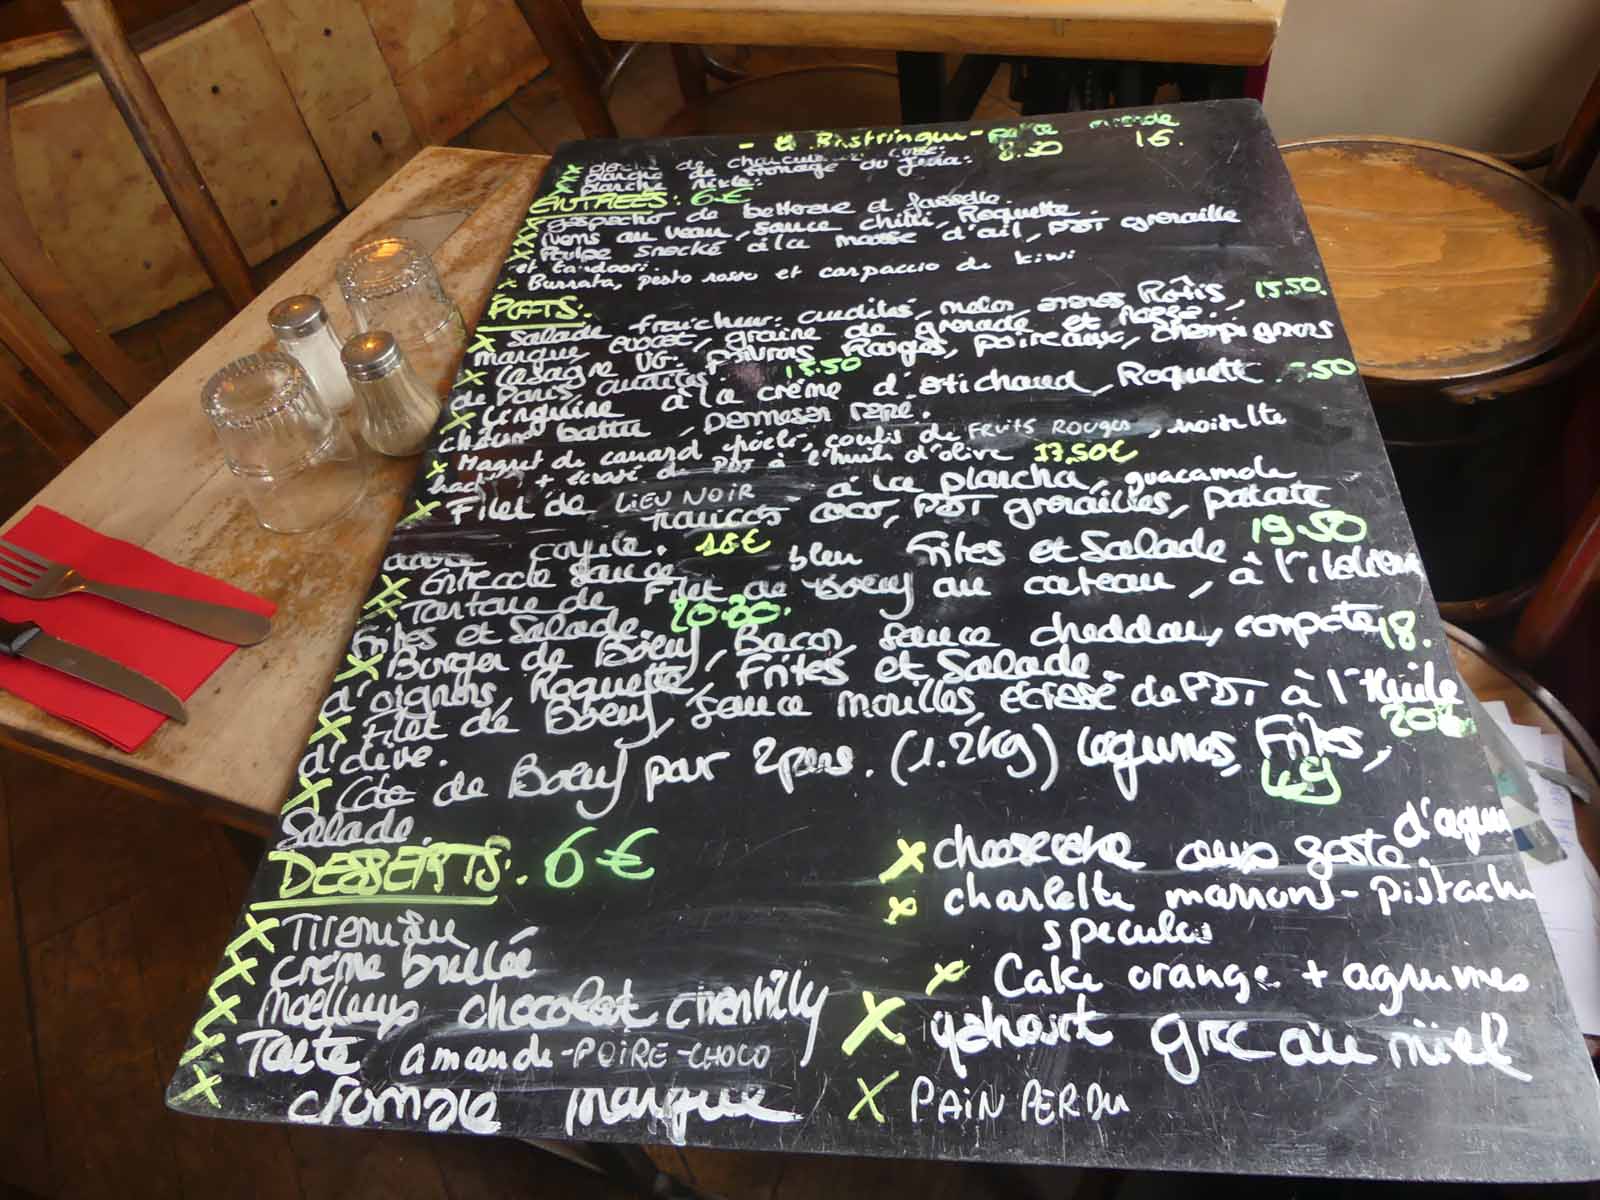 - Bistringue -
8.50 16.
X planche de
X planche de fromage du Jura.
X planche mixte.
ENTRÉES: 6€
X gaspacho de betterave
X Nems au veau, sauce chilli, Roquette.
X Poulpe snacké à la d'ail, PDT grenaille
et tandoori.
X Burrata, pesto rosso et carpaccio de kiwi
PLATS:
X Salade fraîcheur: crudités, melon, ananas Rôtis, 15.50.
mangue, avocat, graine de grenade et
X Lasagne VG. poivrons Rouges, poireaux, champignons
de Paris, crudités. 15.50
X Linguine à la crème d'artichaud, Roquette
battu, parmesan rapé.
X Magret de canard coulis de FRUITS ROUGES, noisette
+ écrasé de PDT à l'huile d'olive 17,50€
X Filet de LIEU NOIR à la plancha, guacamole
haricots coco, PDT grenailles, patate
18€
X Entrecote sauce bleu Frites et Salade 19.50
X Tartare de Filet de Boeuf au couteau, à l'italienne
Frites et Salade. 20.80.
X Burger de Boeuf, Bacon, sauce cheddar, compote 18.
d'oignons, Roquette, Frites et Salade
X Filet de Boeuf, sauce morilles, écrasé de PDT à l'Huile
d'olive.
X Côte de Boeuf par 2pers. (1.2kg) légumes, Frites,
Salade. 49
DESSERTS. 6€
X Tiramisu
X crème brulée
X Moelleux chocolat chantilly
X Tarte amande-POIRE-CHOCO
X mangue
X cheesecake aux zeste d'agrum
X charlotte marrons - pistache
speculos
X Cake orange + agrumes
X yahourt grec au miel
X PAIN PERDU